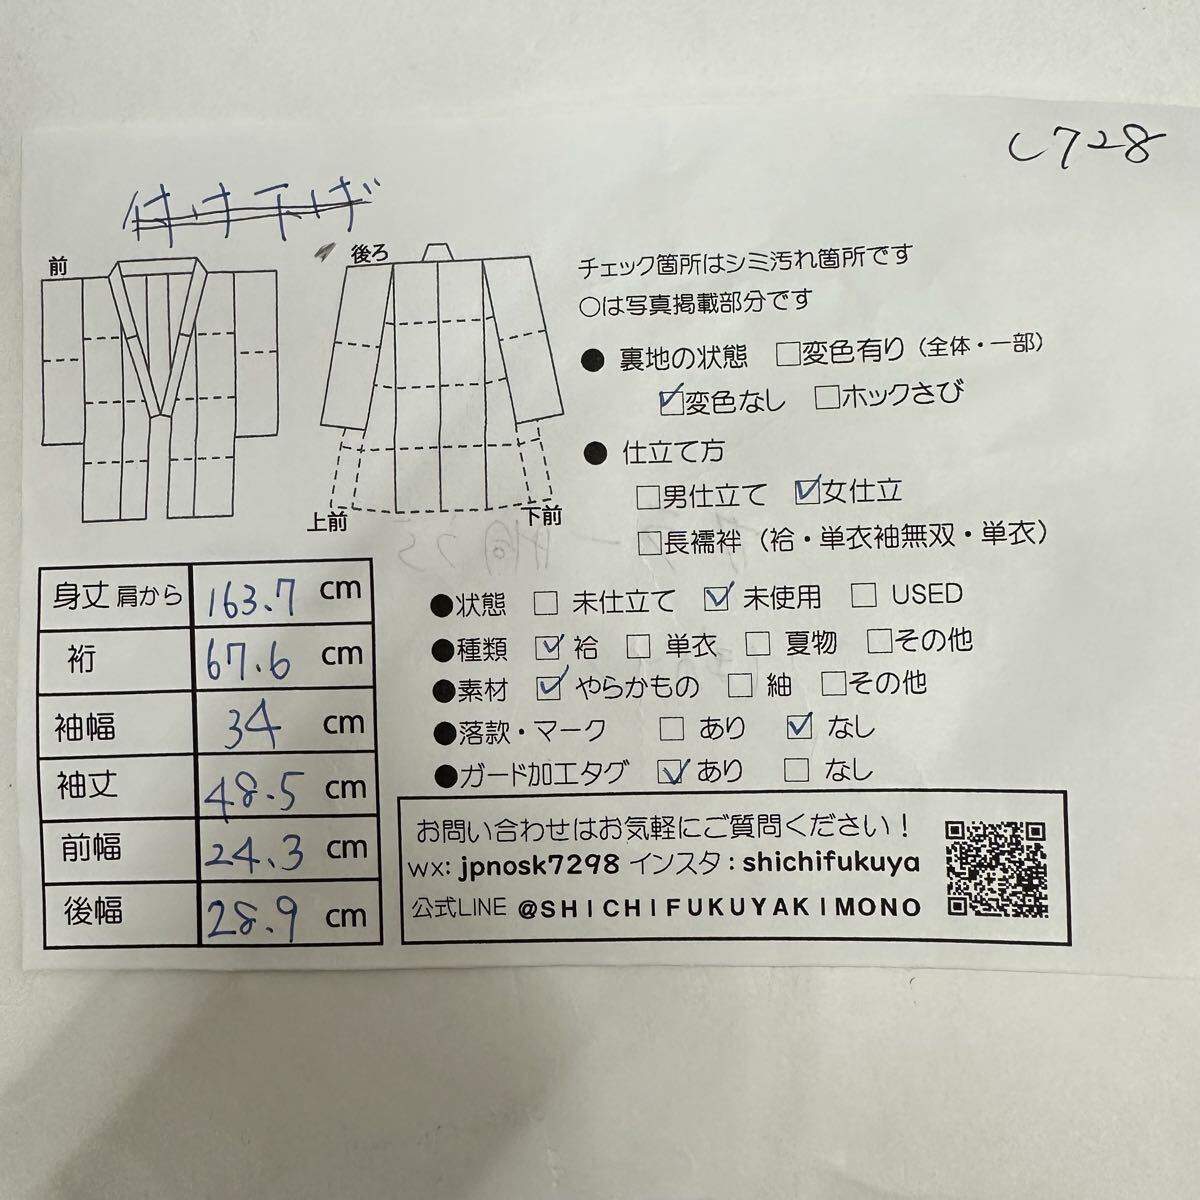 し728
付け下げ
前
後ろ
上前
下前
チェック箇所はシミ汚れ箇所です
○は写真掲載部分です
● 裏地の状態 □変色有り（全体・一部）
☑変色なし □ホックさび
● 仕立て方
□男仕立て ☑女仕立
□長襦袢（袷・単衣袖無双・単衣）
●状態 □ 未仕立て ☑ 未使用 □ USED
●種類 ☑ 袷 □ 単衣 □ 夏物 □その他
●素材 ☑ やらかもの □ 紬 □その他
●落款・マーク □ あり ☑ なし
●ガード加工タグ ☑ あり □ なし
身丈 肩から 163.7 cm
裄 67.6 cm
袖幅 34 cm
袖丈 48.5 cm
前幅 24.3 cm
後幅 28.9 cm
お問い合わせはお気軽にご質問ください！
wx: jpnosk7298 インスタ：shichifukuya
公式LINE @SHICHIFUKUYAKIMONO